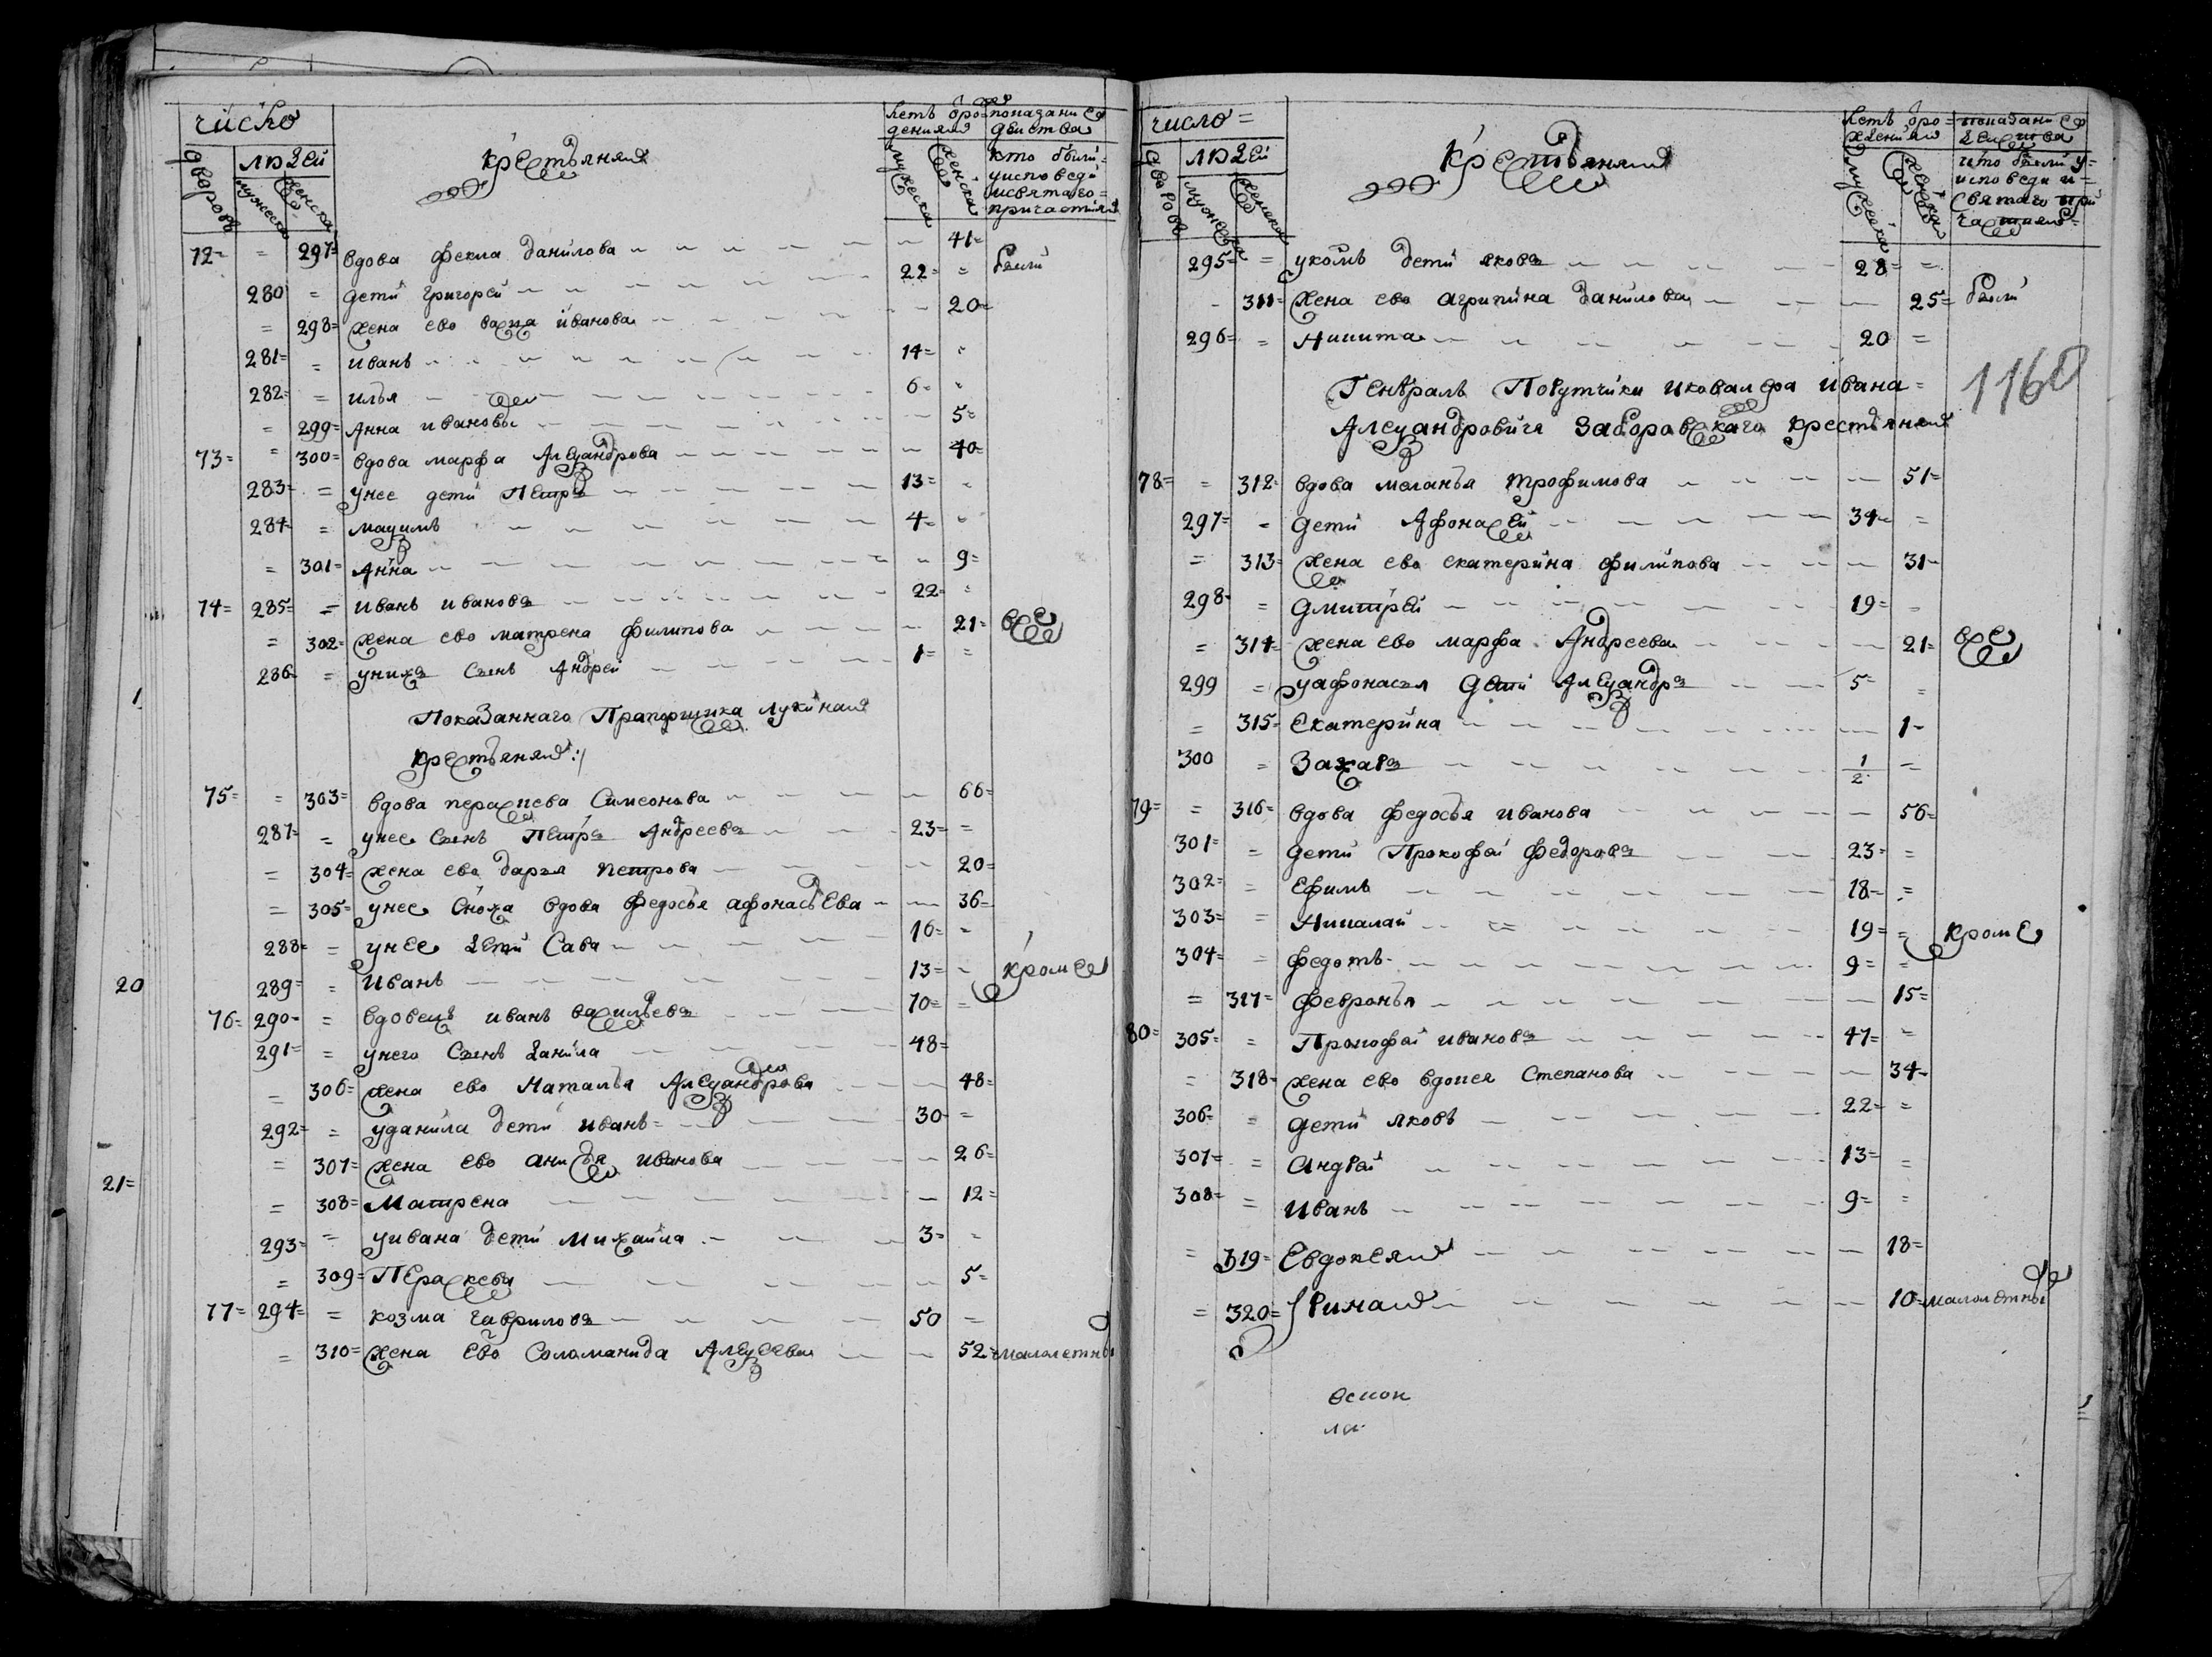 число
людей
дворовъ
мужеска
женска
крестьяня
летъ отро=
дения
мужеска
женска
показани ео
действа
кто были
уисповеди
исвятаго=
причастия
72= = 297= вдова фекла данилова — 41=
280 = дети григорей 22= = были
= 298= жена ево васса иванова — 20=
281= = иванъ 14= =
282= = илья 6= =
= 299= Анна ивановы — 5=
73= = 300= вдова марфа Алеѯандрова — 40=
283= = унее дети Петръ 13= =
284= = маѯимъ 4= =
= 301= Анна — 9=
74= 285= = иванъ ивановъ 22= =
= 302= жена ево матрена филипова — 21= все
286= = унихъ сынъ Андрей 1= =
Показаннаго Прапорщика Лукина
крестьяня:/
75= = 303= вдова перасковa Симеонова — 66=
287= = унее сынъ Петръ Андреевъ 23= =
= 304= жена ево дарья петрова — 20=
= 305= унее сноха вдова федосья афонасьева — 36=
288= = унее дети Сава 16= =
289= = Иванъ 13= = кроме
76= 290= = вдовецъ иванъ васильевъ 70= =
291= = унего сынъ данила 48=
= 306= жена ево Наталья Алеѯандрова — 48=
292= = уданила дети иванъ= 30= =
= 307= жена ево анисья иванова — 26=
= 308= Матрена — 12=
293= = уивана дети михайла 3= =
= 309= Пераскева — 5=
77= 294= = козма гавриловъ 50 =
= 310= жена ево Соломанида Алеѯеева — 52= малолетны
1
20
21=
число=
людей
дворовъ
мужеска
женска
крестьяня
летъ отро=
ждения
мужеска
женска
показани ео
действа
кто были у=
исповеди и=
святаго при
частия=
295= = укозмъ дети яковъ 28= =
= 311= жена ево агрипина данилова — 25= были
296= = Никита 20 =
1160
Генералъ Порутчика икавалера ивана=
Алеѯандровича Заборовскаго крестьяня
78= = 312= вдова меланья трофимова — 51=
297= = дети Афонасей 34= =
= 313= жена ево екатерина филипова — 31=
298= = дмитрей 19= =
= 314= жена ево марфа Андреева — 21= все
299 = уафонасья дети Алеѯандръ 5= =
= 315= Екатерина — 1=
300 = Захаръ 1/2 =
79= = 316= вдова федосья иванова — 56=
301= = дети Прокофей федоровъ 23= =
302= = Ефимъ 18= =
303= = Николай 19= = кроме
304= = федотъ 9= =
= 317= февронья — 15=
80= 305= = Прокофей ивановъ 47= =
= 318= жена ево вдокея Степанова — 34=
306= = дети яковъ 22= =
307= = андрей 13= =
308= = иванъ 9= =
= 319= Евдокея — 18=
= 320= Ирина — 10= малолетны